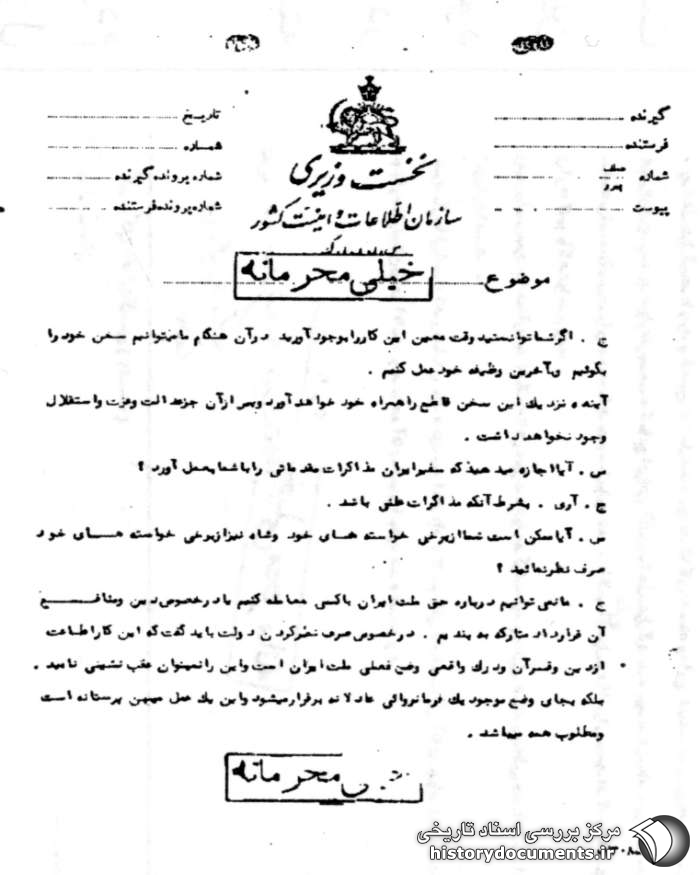 گیرنده
فرستنده
شماره
پیوست
تاریخ
شماره
شماره پرونده گیرنده
شماره پرونده فرستنده
نخست وزیری
سازمان اطلاعات و امنیت کشور
موضوع
خیلی محرمانه
ج . اگر شما توانستید وقت معین این کار را بوجود آورید در آن هنگام ما میتوانیم سخن خود را
بگوئیم و بآخرین وظیفه خود عمل کنیم .
آینده نزدیك این سخن قاطع را همراه خود خواهد آورد و پس از آن جز عدالت و عزت و استقلال
وجود نخواهد داشت .
س . آیا اجازه میدهید که سفیر ایران مذاکرات مقدماتی را با شما بعمل آورد ؟
ج . آری . بشرط آنکه مذاکرات علنی باشد .
س . آیا ممکن است شما از برخی خواسته های خود و شاه نیز از برخی خواسته های خود
صرف نظر نمائید ؟
ج . ما نمی توانیم درباره حق ملت ایران با کسی معامله کنیم یا در خصوص دین و منافع
آن قرارداد متارکه به بندیم . در خصوص صرف نظر کردن دولت باید گفت که این کار اطاعت
از دین و قرآن و درك واقعی وضع فعلی ملت ایران است و این را نمیتوان عقب نشینی نامید .
بلکه بجای وضع موجود یك فرمانروائی عادلانه برقرار میشود و این یك عمل میهن پرستانه است
و مطلوب همه میباشد .
محرمانه
مرکز بررسی اسناد تاریخی
historydocuments.ir